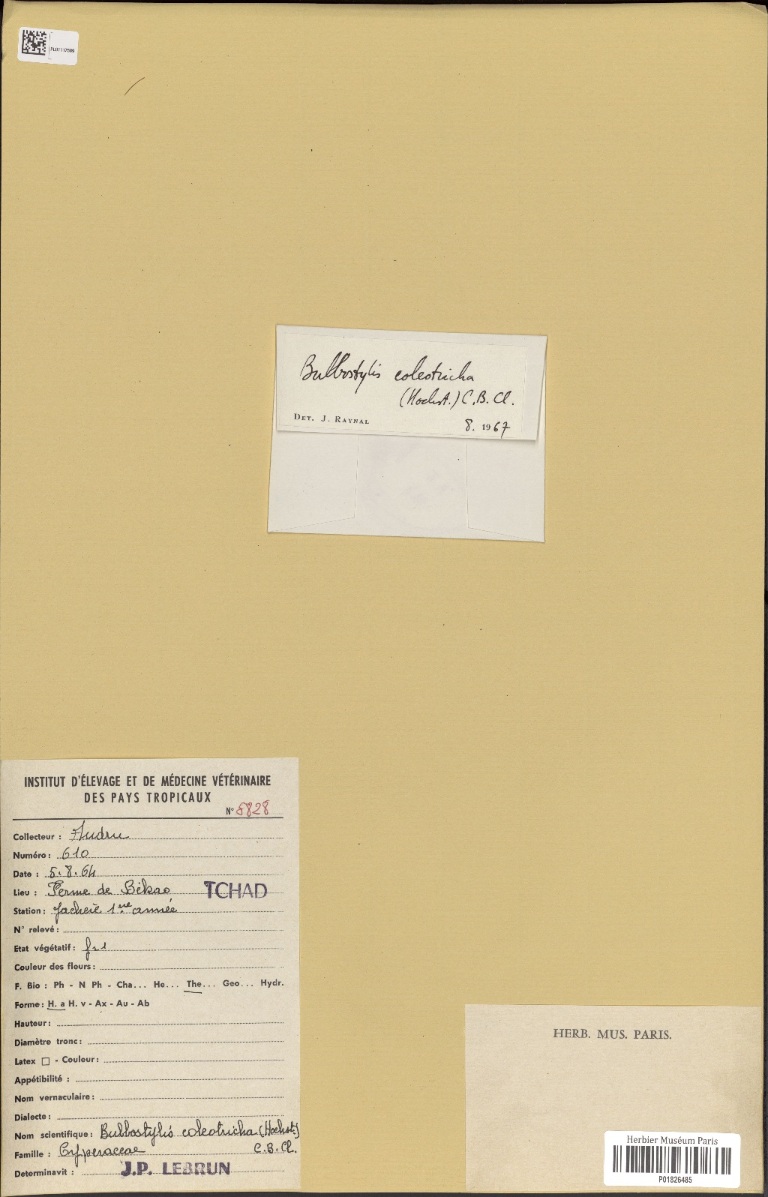 Bulbostylis coleotricha
(Hochst.) C.B. Cl.
DET. J. RAYNAL 8. 1967
INSTITUT D'ÉLEVAGE ET DE MÉDECINE VÉTÉRINAIRE
DES PAYS TROPICAUX
N° 5828
Collecteur : Audru
Numéro : 610
Date : 5.8.64
Lieu : Ferme de Békao TCHAD
Station : Jachère 1ère année
N° relevé :
Etat végétatif :
Couleur des fleurs :
F. Bio : Ph - N Ph - Cha... He... The... Geo... Hydr.
Forme : H. a H. v - Ax - Au - Ab
Hauteur :
Diamètre tronc :
Latex □ - Couleur :
Appétibilité :
Nom vernaculaire :
Dialecte :
Nom scientifique : Bulbostylis coleotricha (Hochst)
Famille : Cyperaceae C.B.Cl.
Determinavit : J.P. LEBRUN
HERB. MUS. PARIS.
Herbier Muséum Paris
P01826485